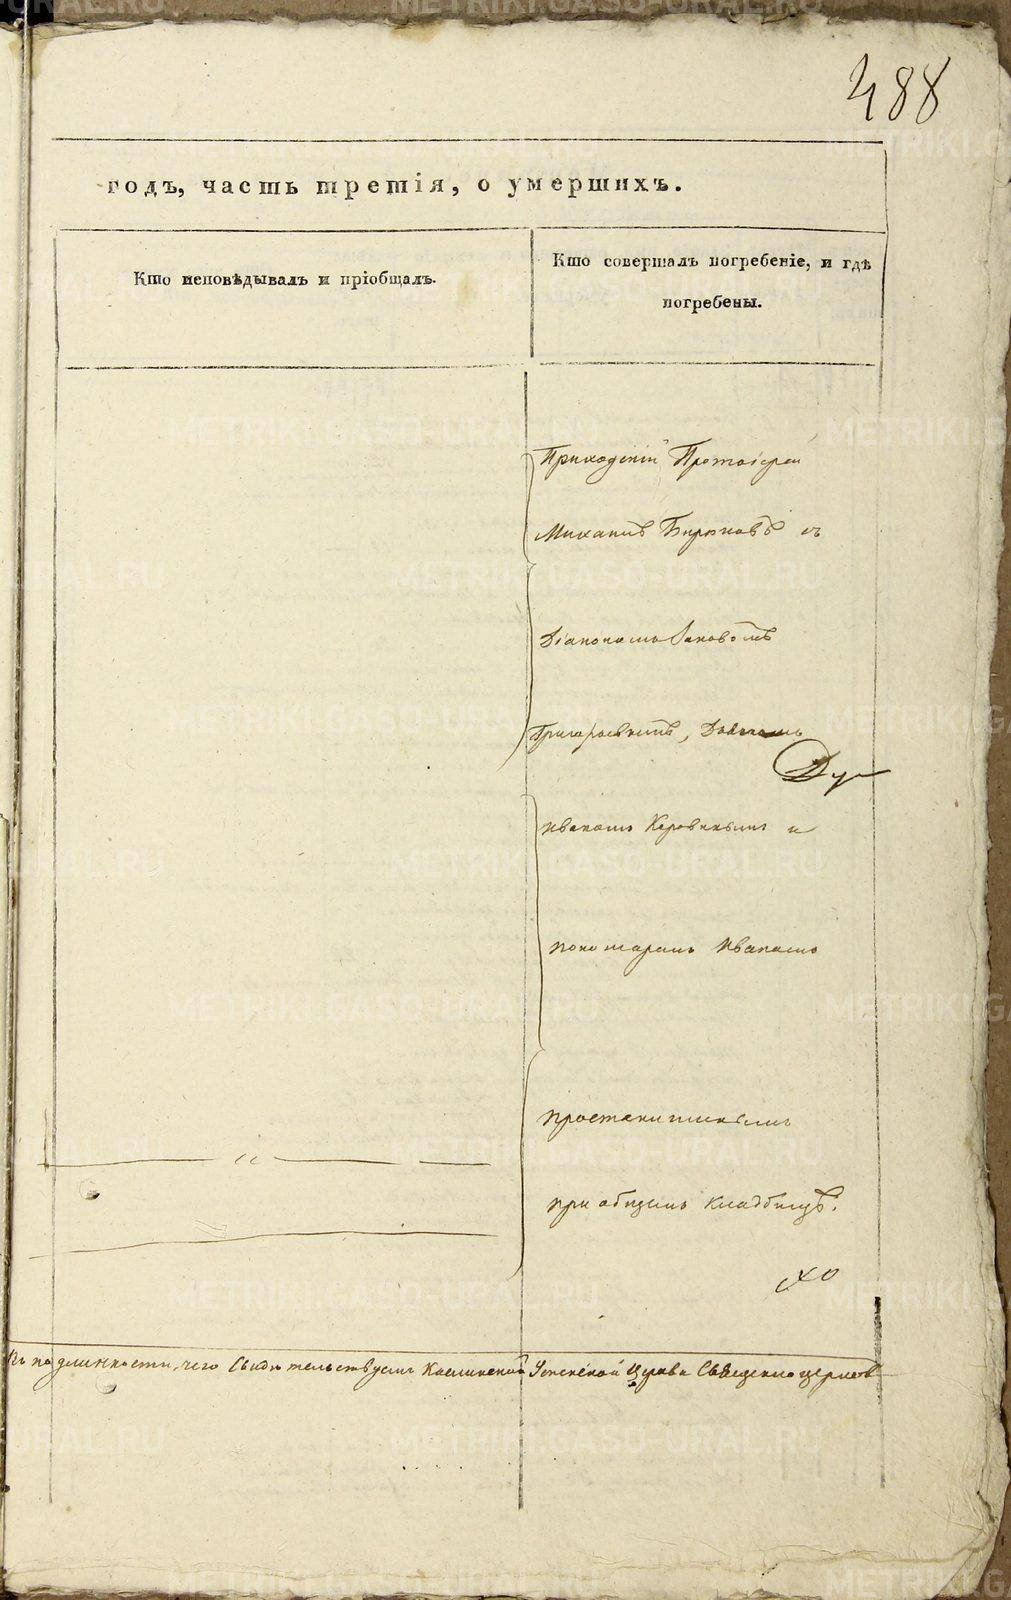 488
годъ, часть третія, о умершихъ.
Кто исповѣдывалъ и пріобщалъ.
Кто совершалъ погребеніе, и гдѣ
погребены.
Приходскій Протоіерей
Михаилъ Бирюковъ съ
Діакономъ Іаковомъ
Григорьевымъ,
Иваномъ Коровинымъ и
пономаремъ Иваномъ
при общемъ кладбищѣ.
Въ подлинности чего Свидѣтельствуемъ Каслинской Успенской Церкви Священноцерков
METRIKI.GASO-URAL.RU